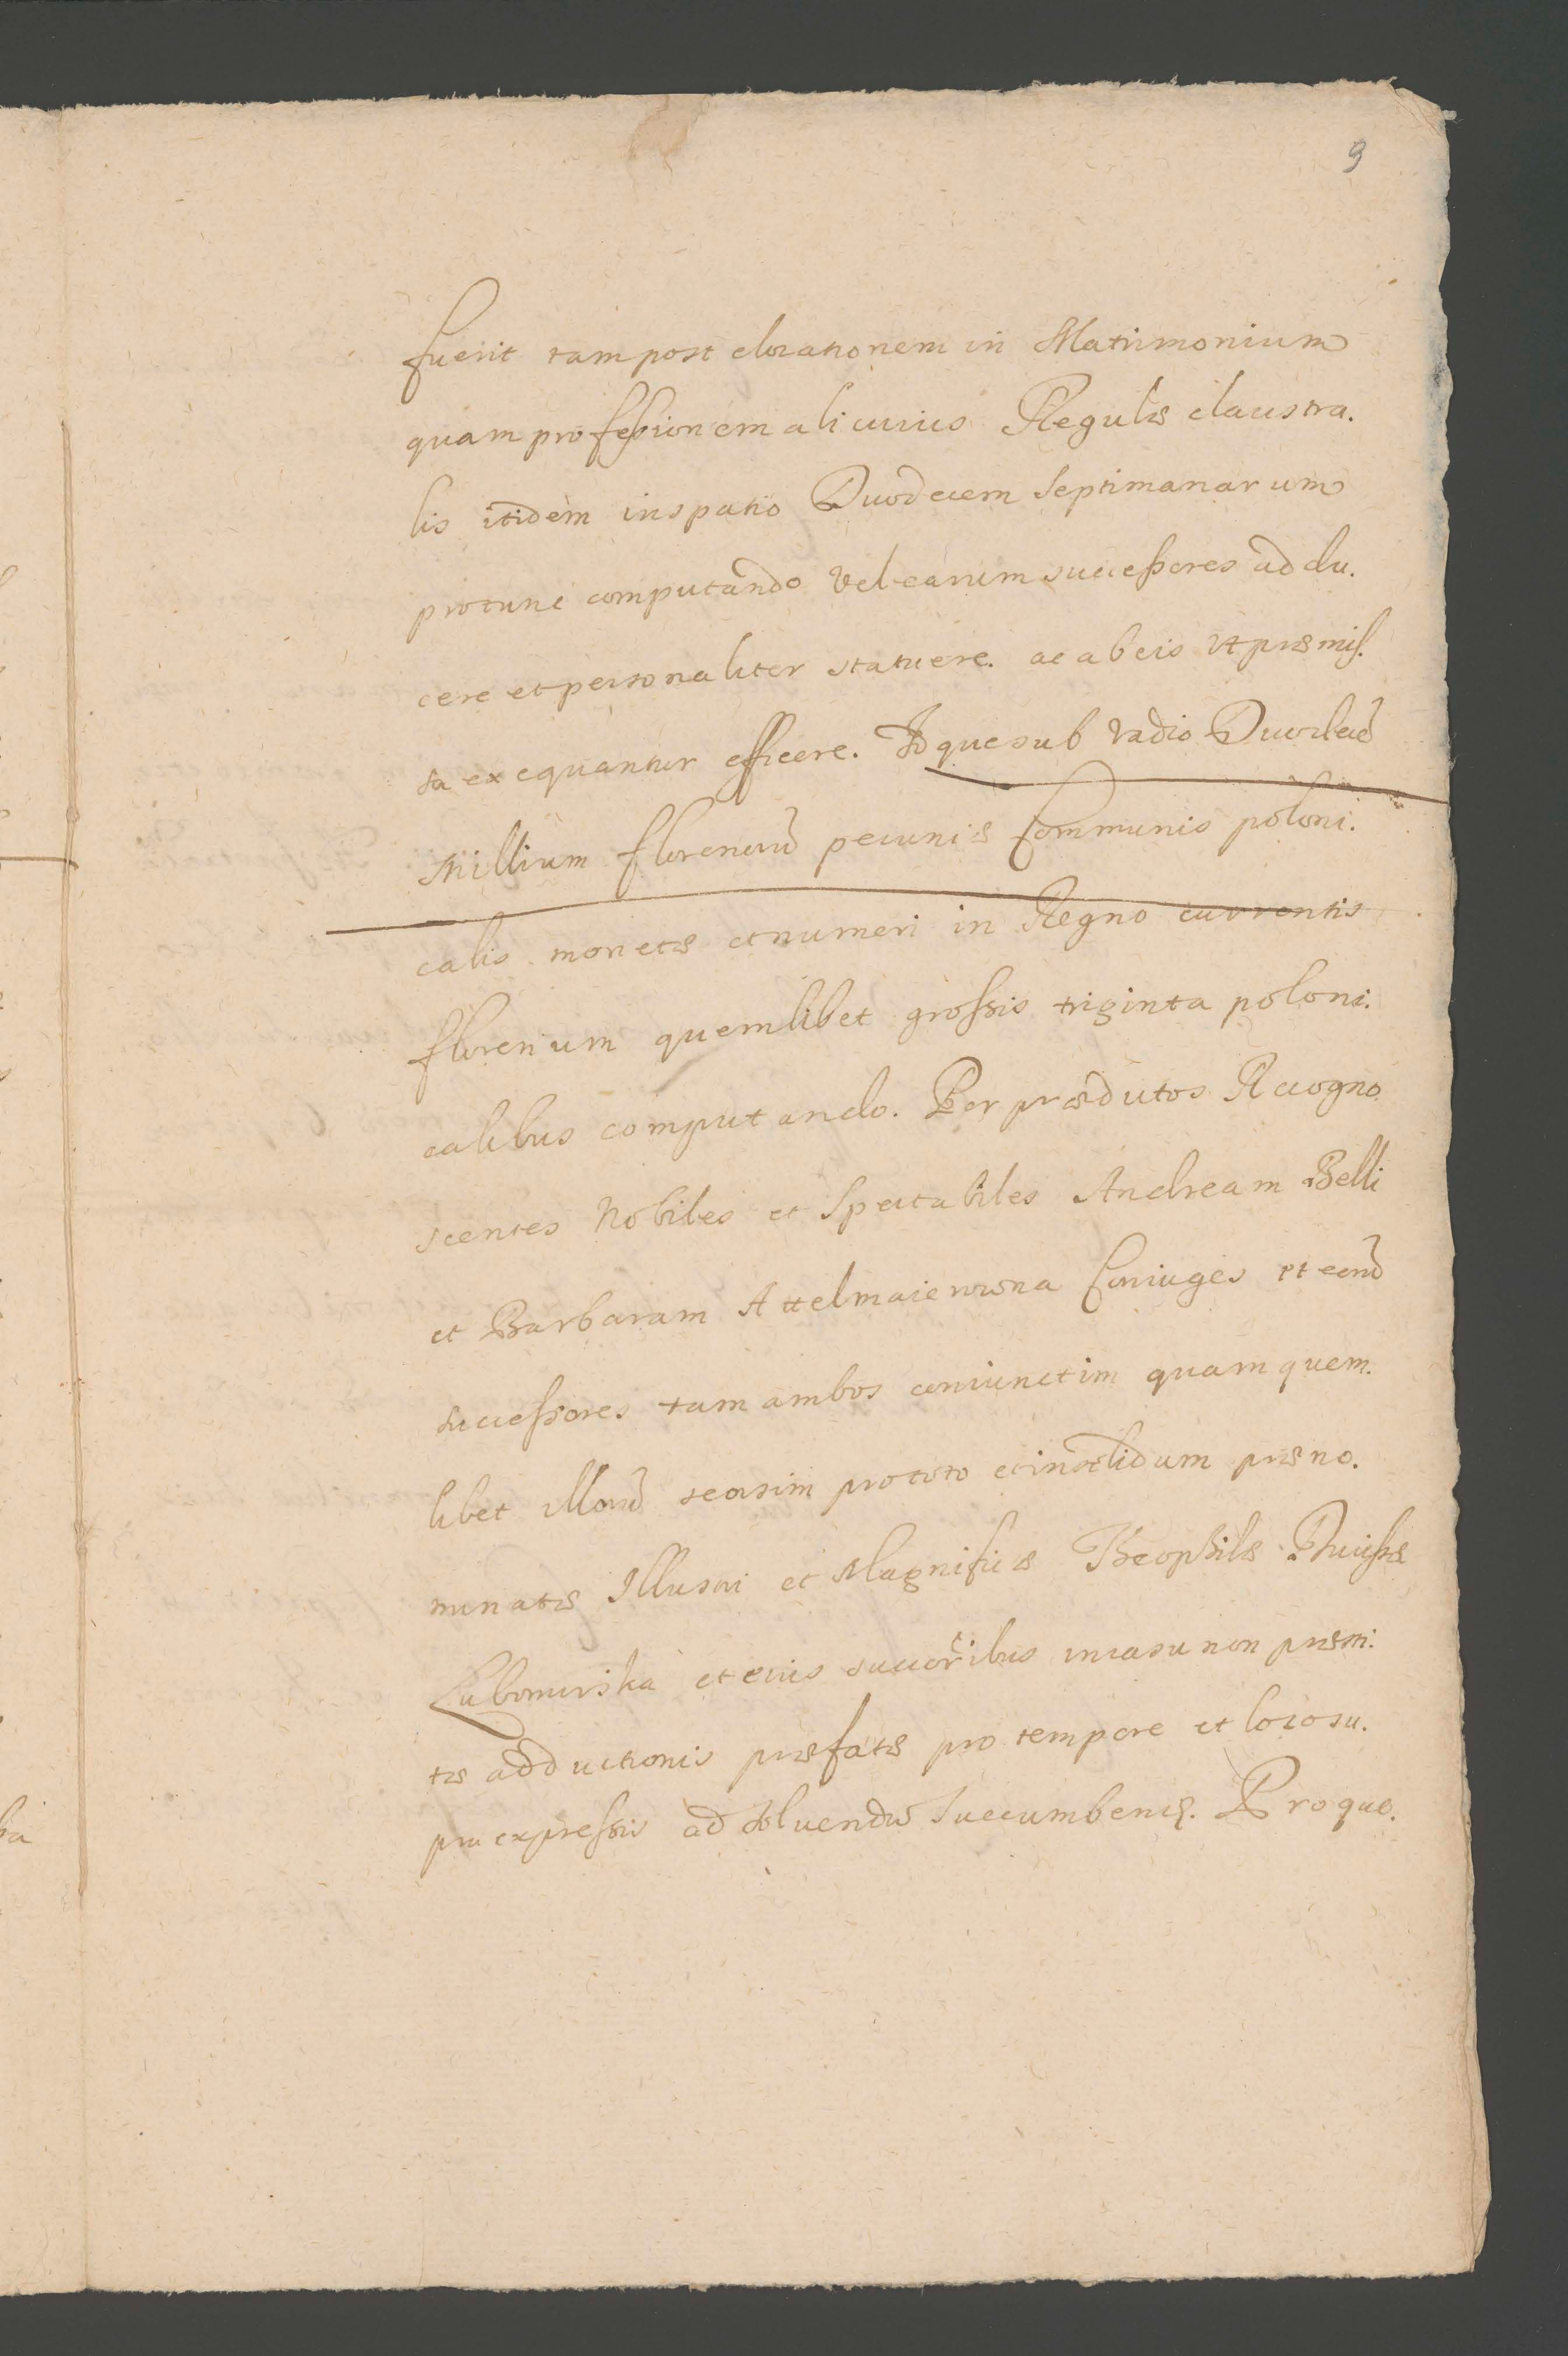 9
fuerit tam post elocationem in Matrimonium
quam professionem alicuius Regulæ claustra.
lis itidem in spatio Duodecem Septimanarum
pro tunc computando vel earum successores addu.
cere et personaliter statuere. ac ab eis vt præmis.
sa exequantur efficere. Idque sub vadio Duodecē
Millium florenorū pecuniæ Communis poloni.
calis monetæ et numeri in Regno currentis
florenum quemlibet grossis triginta poloni.
calibus computando. Per prædictos Recogno.
scentes Nobiles et Spectabiles Andream Belli
et Barbaram Attelmaierowna Coniuges et eorū
successores tam ambos coniunctim quam quem.
libet illorū seorsim pro toto et in solidum præno.
minatæ Illustri et Magnificæ Theophilæ Ducissæ
Lubomirska et eius succoribus in casu non præsti.
tæ adductionis præfatæ pro tempore et loco su.
pra expressis ad soluendū succumbens. Pro quo.
ka